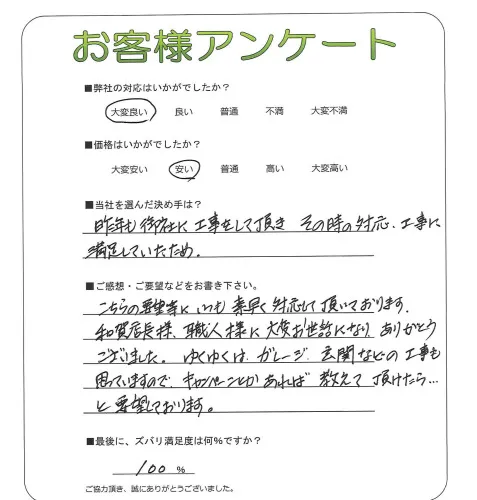 お客様アンケート
■弊社の対応はいかがでしたか？
大変良い 良い 普通 不満 大変不満
■価格はいかがでしたか？
大変安い 安い 普通 高い 大変高い
■当社を選んだ決め手は？
昨年も御社に工事をして頂き その時の対応、工事に
満足していたため。
■ご感想・ご要望などをお書き下さい。
こちらの要望等にいつも素早く対応して頂いております。
和賀店長様、職人様に大変お世話になり ありがとう
ございました。ゆくゆくは、ガレージ、玄関などの工事も
思っていますので、キャンペーンとかあれば 教えて頂けたら…
と要望しております。
■最後に、ズバリ満足度は何%ですか？
100 %
ご協力頂き、誠にありがとうございました。